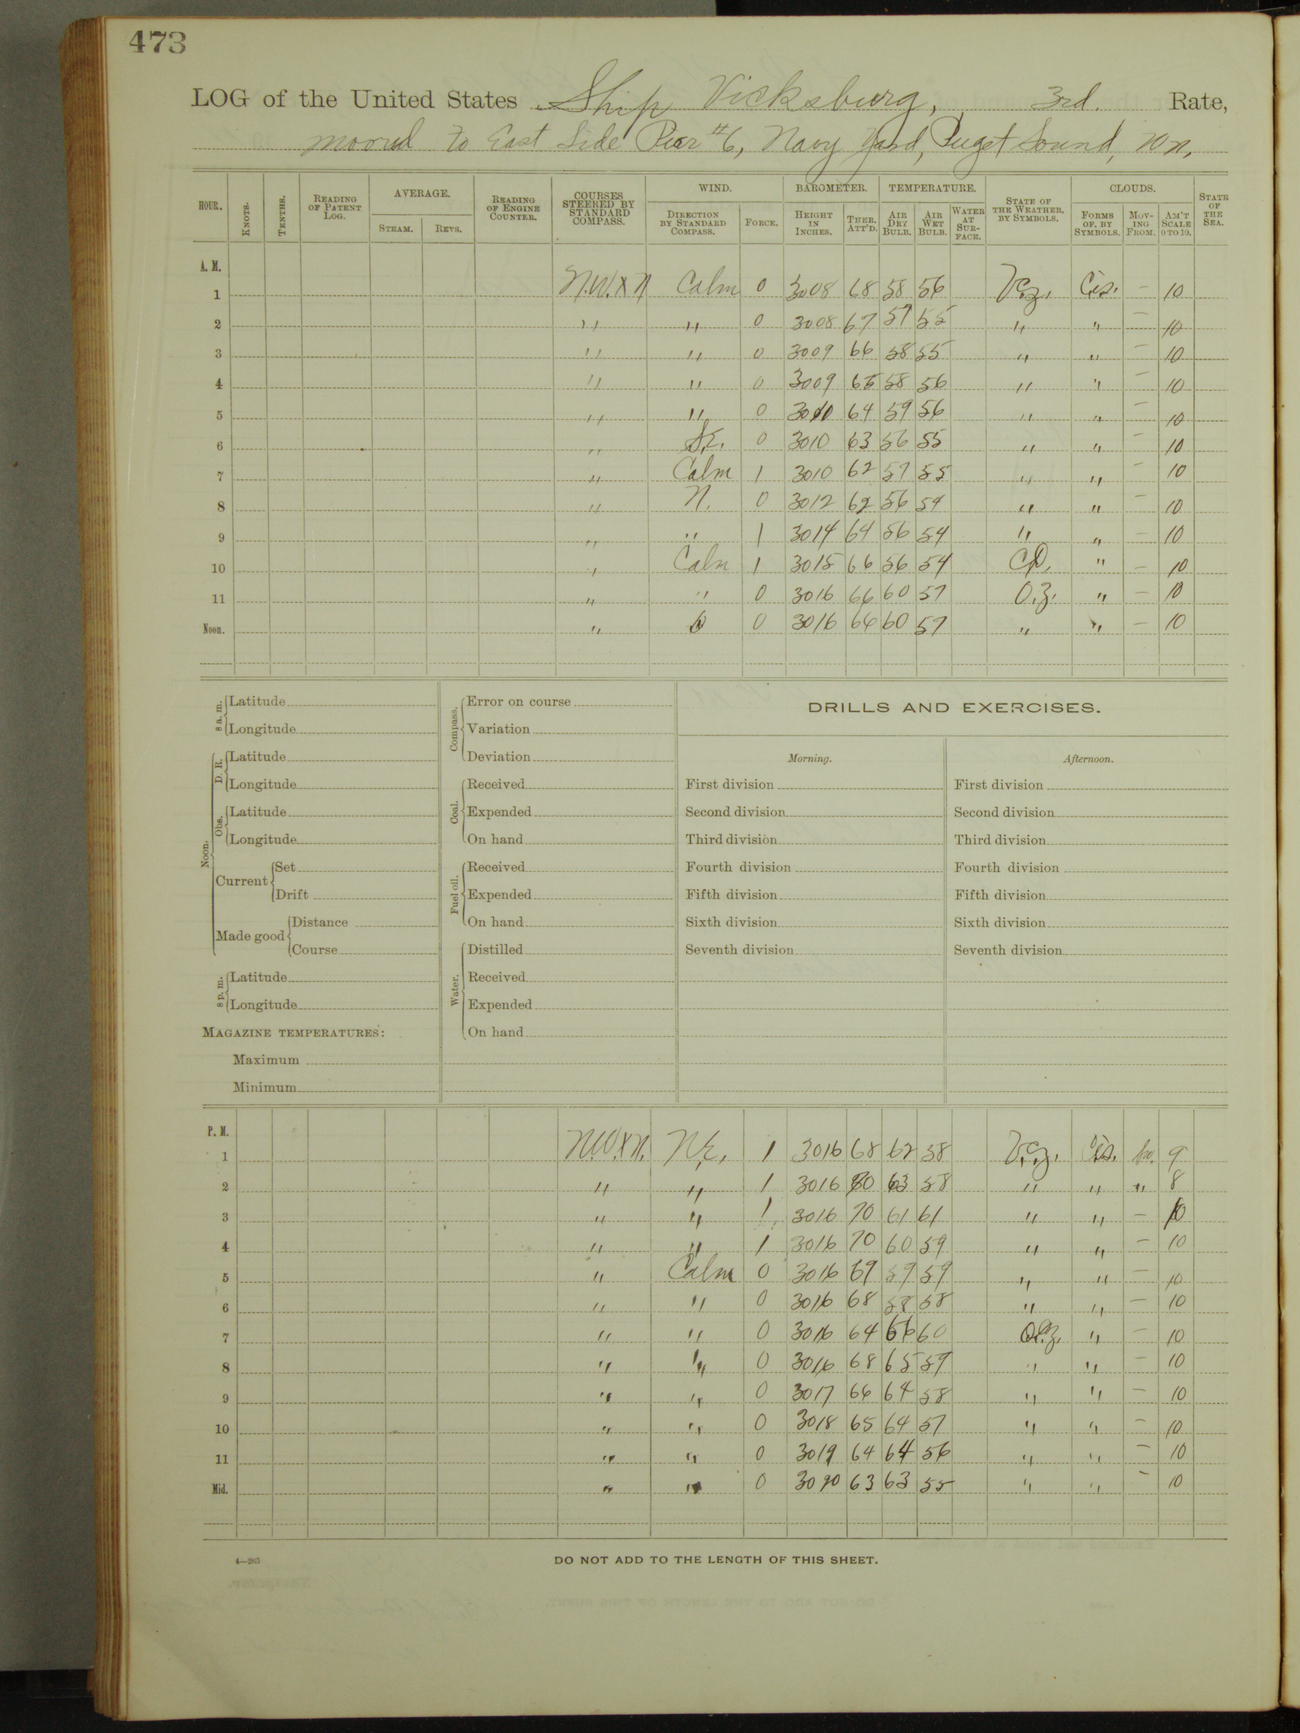 473
LOG of the United States Ship Vicksburg, 3rd. Rate,
moored to East Side Pier #6, Navy Yard, Puget Sound, Wn,
HOUR. KNOTS. TENTHS. READING OF PATENT LOG. AVERAGE. STEAM. REVS. READING OF ENGINE COUNTER. COURSES STEERED BY STANDARD COMPASS. WIND. DIRECTION BY STANDARD COMPASS. FORCE. BAROMETER. HEIGHT IN INCHES. THER. ATT'D. TEMPERATURE. AIR DRY BULB. AIR WET BULB. WATER AT SURFACE. STATE OF THE WEATHER, BY SYMBOLS. CLOUDS. FORMS OF, BY SYMBOLS. MOVING FROM. AM'T SCALE 0 TO 10. STATE OF THE SEA.
A. M.
1 N.W.XN Calm 0 3008 68 58 56 Cis. — 10
2 " " 0 3008 67 57 55 " " — 10
3 " " 0 3009 66 58 55 " " — 10
4 " " 0 3009 65 58 56 " " — 10
5 " " 0 3010 64 59 56 " " — 10
6 " 0 3010 63 56 55 " " — 10
7 " Calm 1 3010 62 57 55 " " — 10
8 " N. 0 3012 62 56 54 " " — 10
9 " " 1 3014 64 56 54 " " — 10
10 " Calm 1 3015 66 56 54 " — 10
11 " " 0 3016 66 60 57 O.z. " — 10
Noon. " 0 3016 66 60 57 " " — 10
8 a. m. Latitude
Longitude
Noon. D. R. Latitude
Longitude
Obs. Latitude
Longitude
Current Set
Drift
Made good Distance
Course
8 p. m. Latitude
Longitude
MAGAZINE TEMPERATURES:
Maximum
Minimum
Compass. Error on course
Variation
Deviation
Coal. Received
Expended
On hand
Fuel oil. Received
Expended
On hand
Water. Distilled
Received
Expended
On hand
DRILLS AND EXERCISES.
Morning.
First division
Second division
Third division
Fourth division
Fifth division
Sixth division
Seventh division
Afternoon.
First division
Second division
Third division
Fourth division
Fifth division
Sixth division
Seventh division
P. M.
1 N.W.XN. N.E. 1 3016 68 62 58 Cis. 9
2 " " 1 3016 63 58 " " " 8
3 " " 1 3016 70 61 61 " " — 10
4 " " 1 3016 70 60 59 " " — 10
5 " Calm 0 3016 69 59 59 " " — 10
6 " " 0 3016 68 58 58 " " — 10
7 " " 0 3016 64 60 " — 10
8 " " 0 3016 68 65 59 " " — 10
9 " " 0 3017 66 64 58 " " — 10
10 " " 0 3018 65 64 57 " " — 10
11 " " 0 3019 64 64 56 " " — 10
Mid. " " 0 3020 63 63 55 " " — 10
4—265
DO NOT ADD TO THE LENGTH OF THIS SHEET.